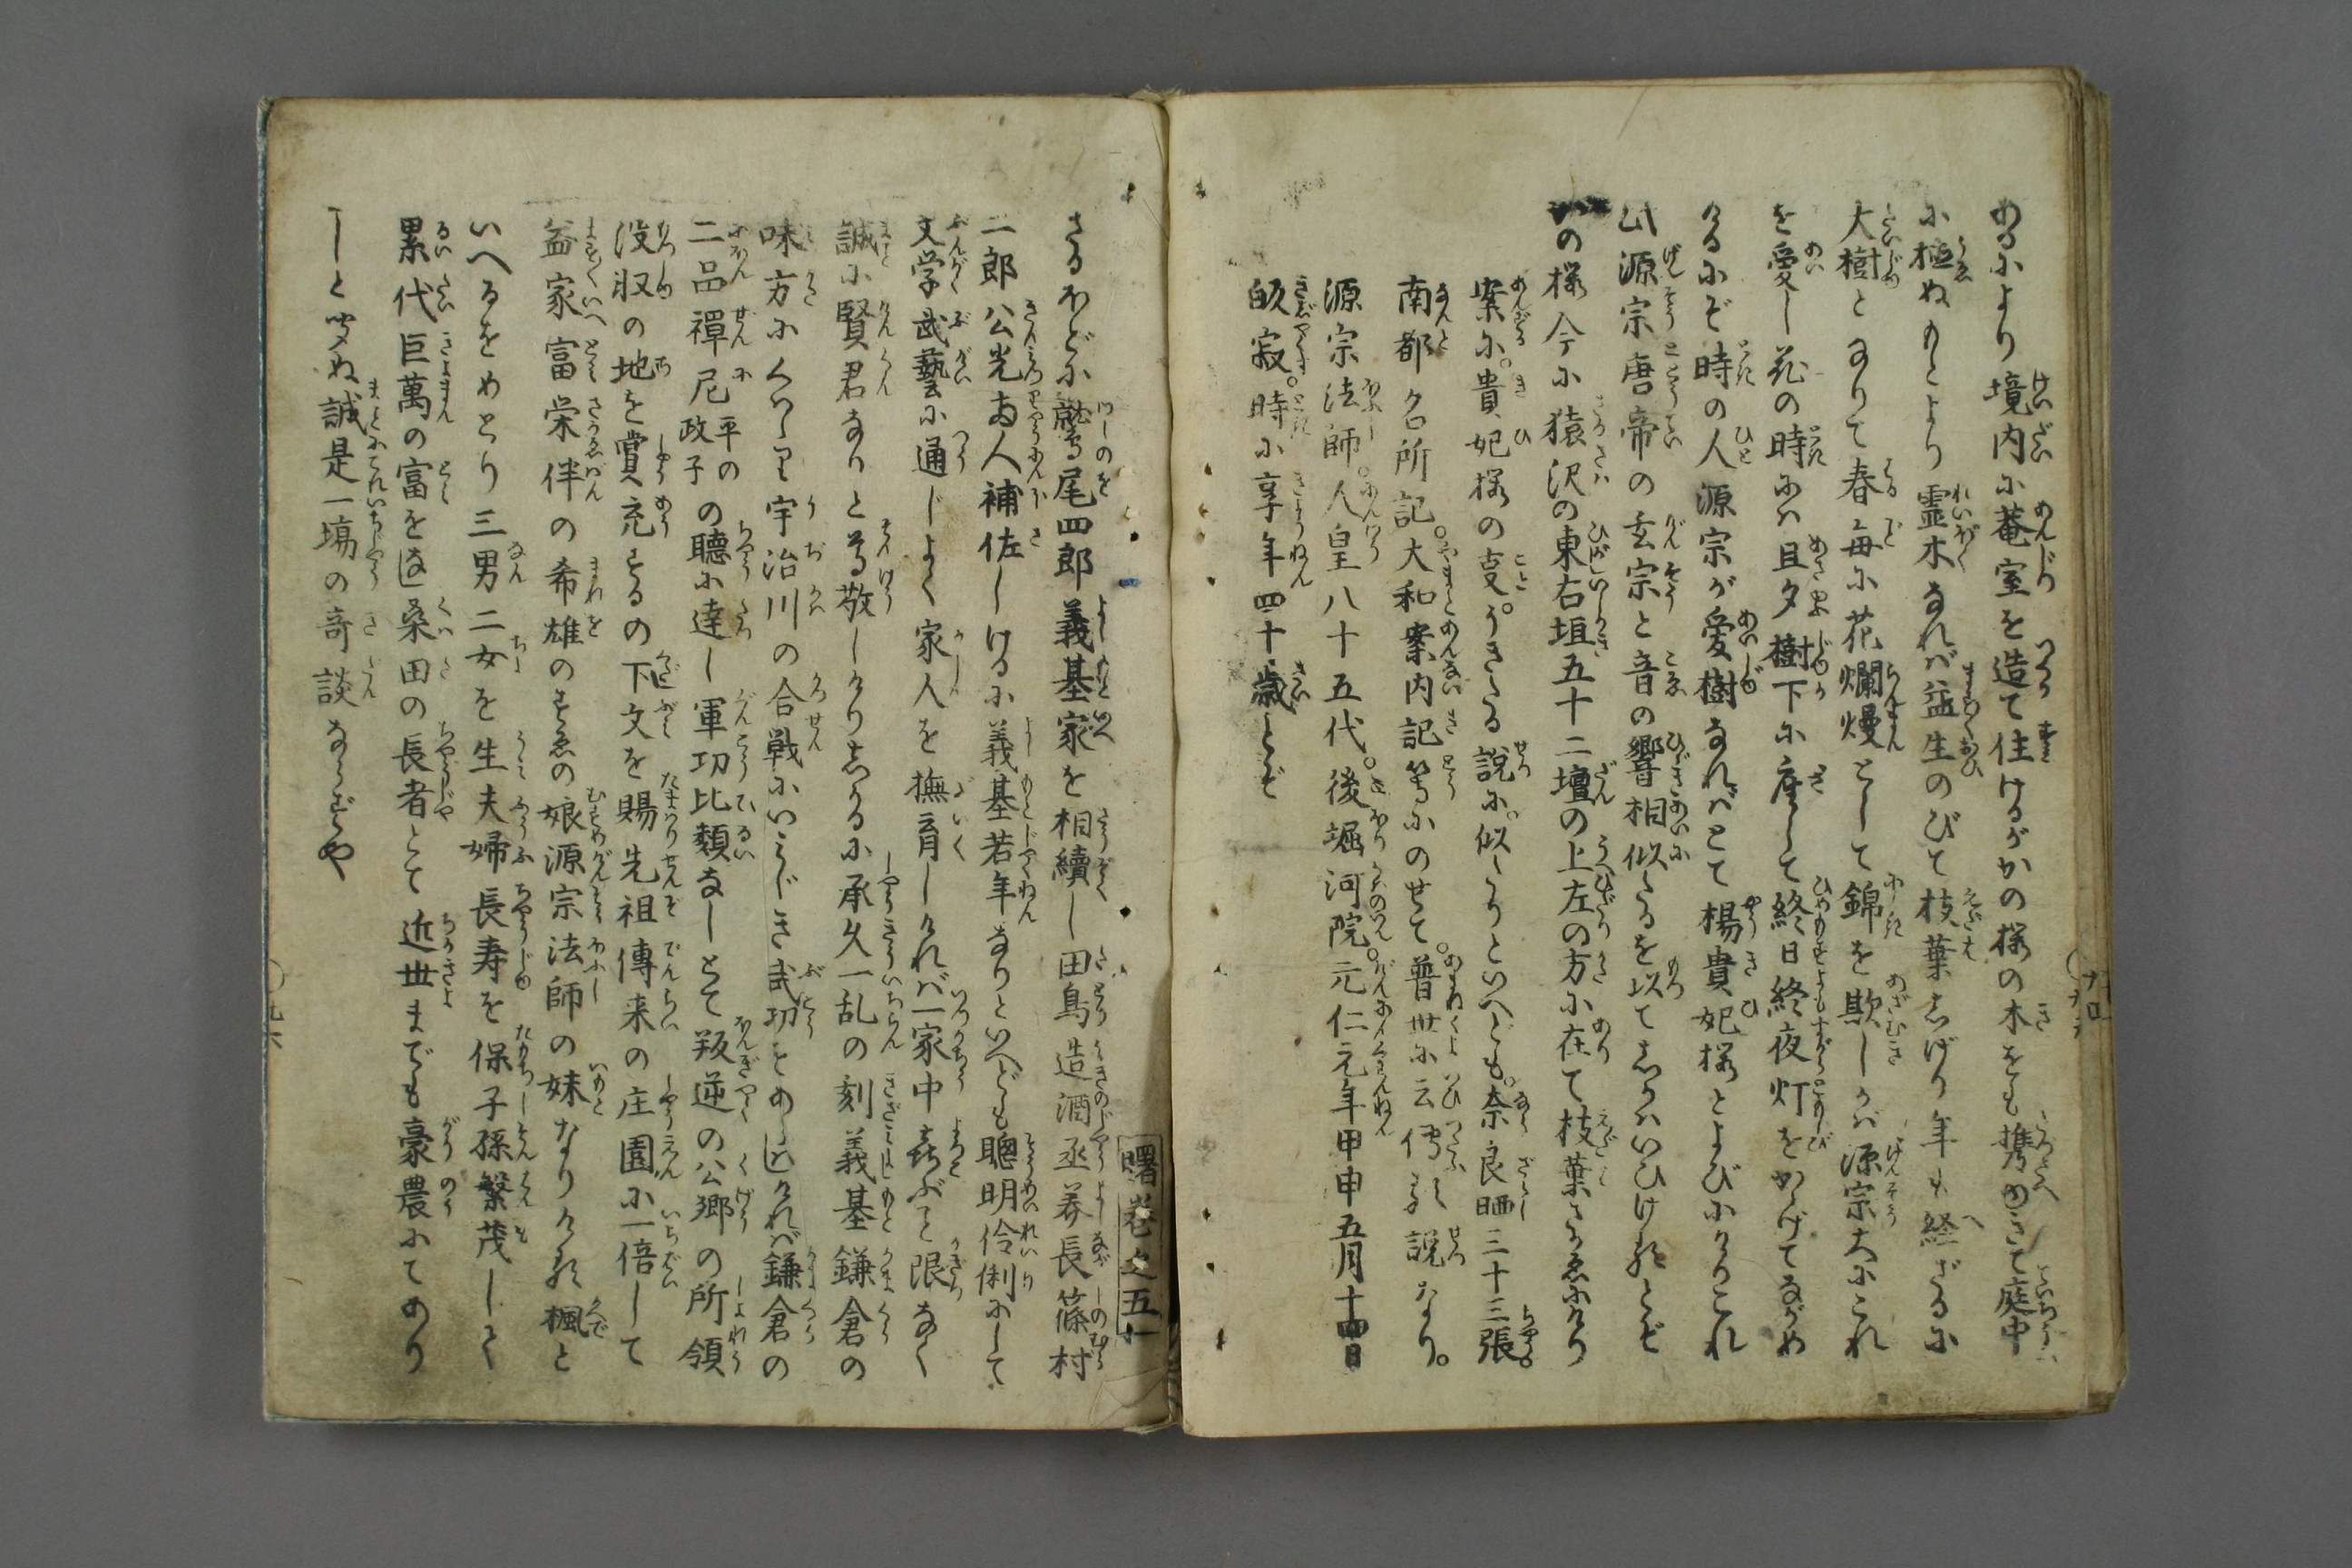 あるにより境内に菴室を造て住けるがかの桜の木をも携ゆきて庭中
に植ぬもとより霊木なれば益生のびて枝葉しげり年も経ざるに
大樹となりて春毎に花爛熳として錦を欺しかば源宗大にこれ
を愛し花の時には旦夕樹下に座して終日終夜灯をかゝげてながめ
けるにぞ時の人源宗が愛樹なればとて楊貴妃桜とよびにけりこれ
此源宗唐帝の玄宗と音の響相似たるを以てしかはいひけるとぞ
の桜今に猿沢の東右垣五十二壇の上左の方に在て枝葉さかゑにけり
案に。貴妃桜の支。うきたる説に。似たりといへども。奈良晒三十三張。
南都名所記。大和案内記等にのせて。普世に云伝る説なり。
源宗法師。人皇八十五代。後堀河院。元仁元年甲申五月十四日
皈寂。時に享年四十歳とぞ
曙巻之五
さるほどに鷲尾四郎義基家を相續し田鳥造酒丞養長篠村
二郎公光両人補佐しけるに義基若年なりといへども聰明伶俐にして
文学武藝に通じよく家人を撫育しければ一家中喜ぶこと限なく
誠に賢君なりと尊敬しけりしかるに承久一乱の刻義基鎌倉の
味方にくはゝり宇治川の合戦にいみじき武功をあらはしければ鎌倉の
二品禅尼平の政子の聴に達し軍功比類なしとて叛逆の公郷の所領
没収の地を賞充するの下文を賜先祖傳来の庄園に一倍して
益家富栄伴の希雄のすゑの娘源宗法師の妹なりける楓と
いへるをめとり三男二女を生夫婦長寿を保子孫繁茂しく
累代巨萬の富をなし桑田の長者とて近世までも豪農にてあり
しと聞ぬ誠是一場の奇談ならずや